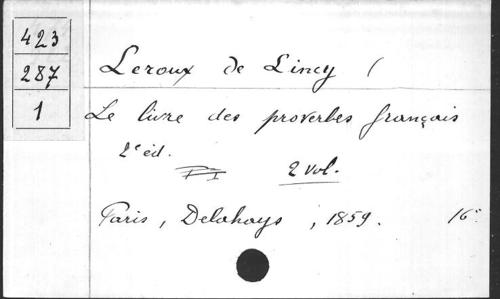 423
287
1
Leroux de Lincy (
Le livre des proverbes français
2e éd.
2 vol.
Paris, Delahays, 1859. 16°